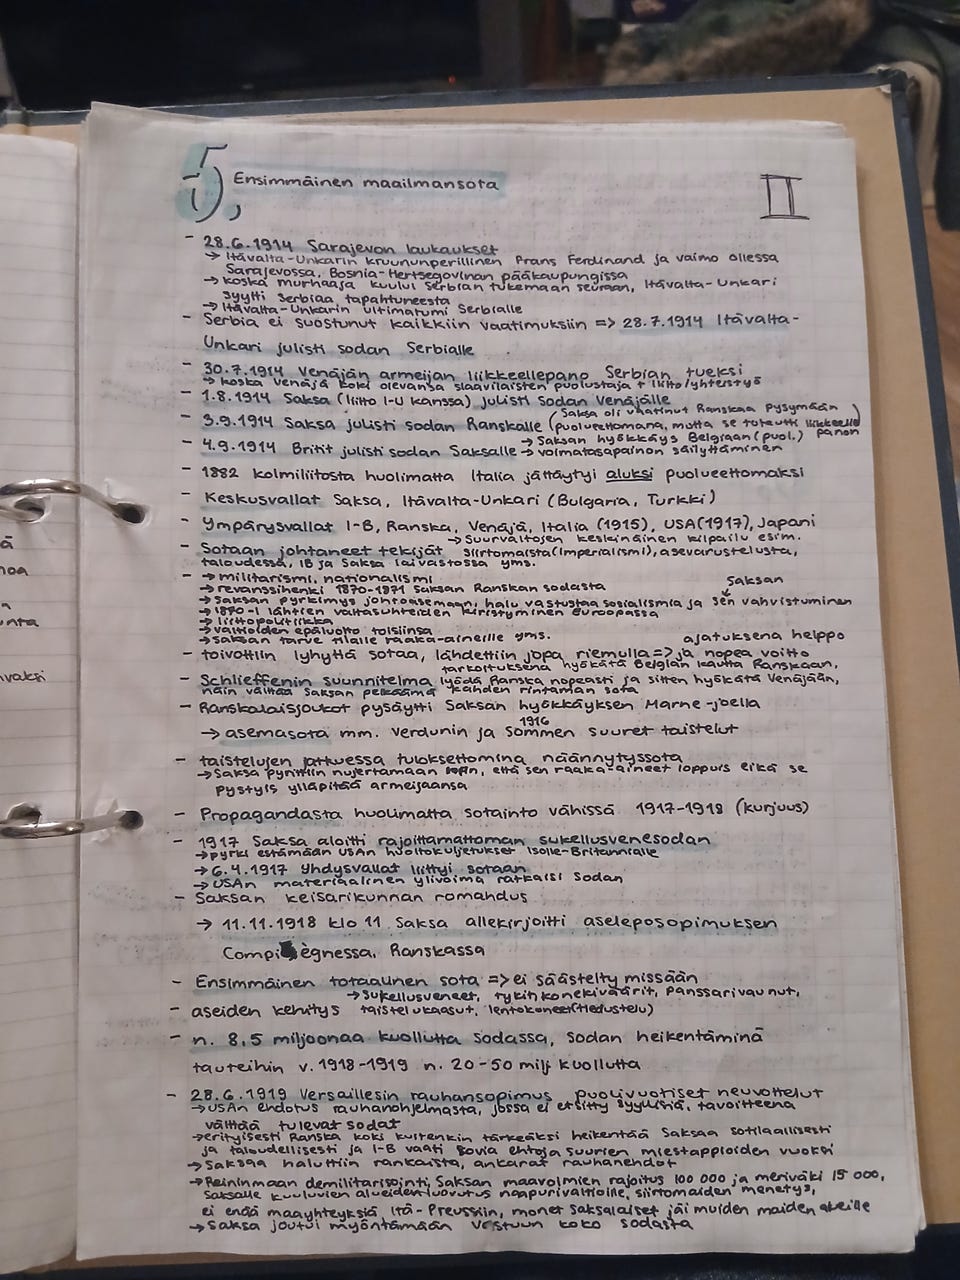 5, Ensimmäinen maailmansota
II
- 28.6.1914 Sarajevon laukaukset
→ Itävalta-Unkarin kruununperillinen Frans Ferdinand ja vaimo ollessa
Sarajevossa, Bosnia-Hertsegovinan pääkaupungissa
→ koska murhaaja kuului Serbian tukemaan seuraan, Itävalta-Unkari
syytti Serbiaa tapahtuneesta
→ Itävalta-Unkarin ultimatumi Serbialle
- Serbia ei suostunut kaikkiin vaatimuksiin => 28.7.1914 Itävalta-
Unkari julisti sodan Serbialle
- 30.7.1914 Venäjän armeijan liikkeellepano Serbian tueksi
→ koska Venäjä koki olevansa slaavilaisten puolustaja + liitto/yhteistyö
- 1.8.1914 Saksa (liitto I-U kanssa) julisti sodan Venäjälle
- 3.9.1914 Saksa julisti sodan Ranskalle (Saksa oli vaatinut Ranskaa pysymään
puolueettomana, mutta se toteutti liikkeelle
panon)
- 4.9.1914 Britit julisti sodan Saksalle → Saksan hyökkäys Belgiaan (puol.)
→ voimatasapainon säilyttäminen
- 1882 kolmiliitosta huolimatta Italia jättäytyi aluksi puolueettomaksi
- Keskusvallat Saksa, Itävalta-Unkari (Bulgaria, Turkki)
- Ympärysvallat I-B, Ranska, Venäjä, Italia (1915), USA (1917), Japani
- Sotaan johtaneet tekijät → Suurvaltojen keskinäinen kilpailu esim.
siirtomaista (imperialismi), asevarustelusta,
taloudessa, IB ja Saksa laivastossa yms.
- → militarismi, nationalismi
→ revanssihenki 1870-1871 Saksan Ranskan sodasta
→ Saksan pyrkimys johtoasemaan, halu vastustaa sosialismia ja Saksan sen vahvistuminen
→ 1870-l lähtien valtasuhteiden kiristyminen Euroopassa
→ liittopolitiikka
→ valtioiden epäluotto toisiinsa
→ Saksan tarve tilalle raaka-aineille yms.
- toivottiin lyhyttä sotaa, lähdettiin jopa riemulla => ajatuksena helppo
ja nopea voitto
- Schlieffenin suunnitelma tarkoituksena hyökätä Belgian kautta Ranskaan,
lyödä Ranska nopeasti ja sitten hyökätä Venäjään,
näin välttää Saksan pelkäämä kahden rintaman sota
- Ranskalaisjoukot pysäytti Saksan hyökkäyksen Marne-joella
→ asemasota mm. Verdunin ja Sommen 1916 suuret taistelut
- taistelujen jatkuessa tuloksettomina näännytyssota
→ Saksa pyrittiin nujertamaan niin, että sen raaka-aineet loppuis eikä se
pystyis ylläpitää armeijaansa
- Propagandasta huolimatta sotainto vähissä 1917-1918 (kurjuus)
- 1917 Saksa aloitti rajoittamattoman sukellusvenesodan
→ pyrki estämään USAn huoltokuljetukset Isolle-Britannialle
→ 6.4.1917 Yhdysvallat liittyi sotaan
→ USAn materiaalinen ylivoima ratkaisi sodan
- Saksan keisarikunnan romahdus
→ 11.11.1918 klo 11 Saksa allekirjoitti aseleposopimuksen
Compiègnessa, Ranskassa
- Ensimmäinen totaalinen sota => ei säästelty missään
- aseiden kehitys → Sukellusveneet, tykit, konekiväärit, panssarivaunut,
taistelukaasut, lentokoneet (tiedustelu)
- n. 8,5 miljoonaa kuollutta sodassa, sodan heikentäminä
tauteihin v. 1918-1919 n. 20-50 milj kuollutta
- 28.6.1919 Versaillesin rauhansopimus puolivuotiset neuvottelut
→ USAn ehdotus rauhanohjelmasta, jossa ei etsitty syyllisiä, tavoitteena
välttää tulevat sodat
→ erityisesti Ranska koki kuitenkin tärkeäksi heikentää Saksaa sotilaallisesti
ja taloudellisesti ja I-B vaati kovia ehtoja suurien miestappioiden vuoksi
→ Saksaa haluttiin rankaista, ankarat rauhanehdot
→ Reininmaan demilitarisointi, Saksan maavoimien rajoitus 100 000 ja meriväki 15 000,
Saksalle kuuluvien alueiden luovutus naapurivaltioille, siirtomaiden menetys,
ei enää maayhteyksiä Itä-Preussiin, monet saksalaiset jäi muiden maiden alueille
→ Saksa joutui myöntämään vastuun koko sodasta
ä
noa
n
unta
nvaksi